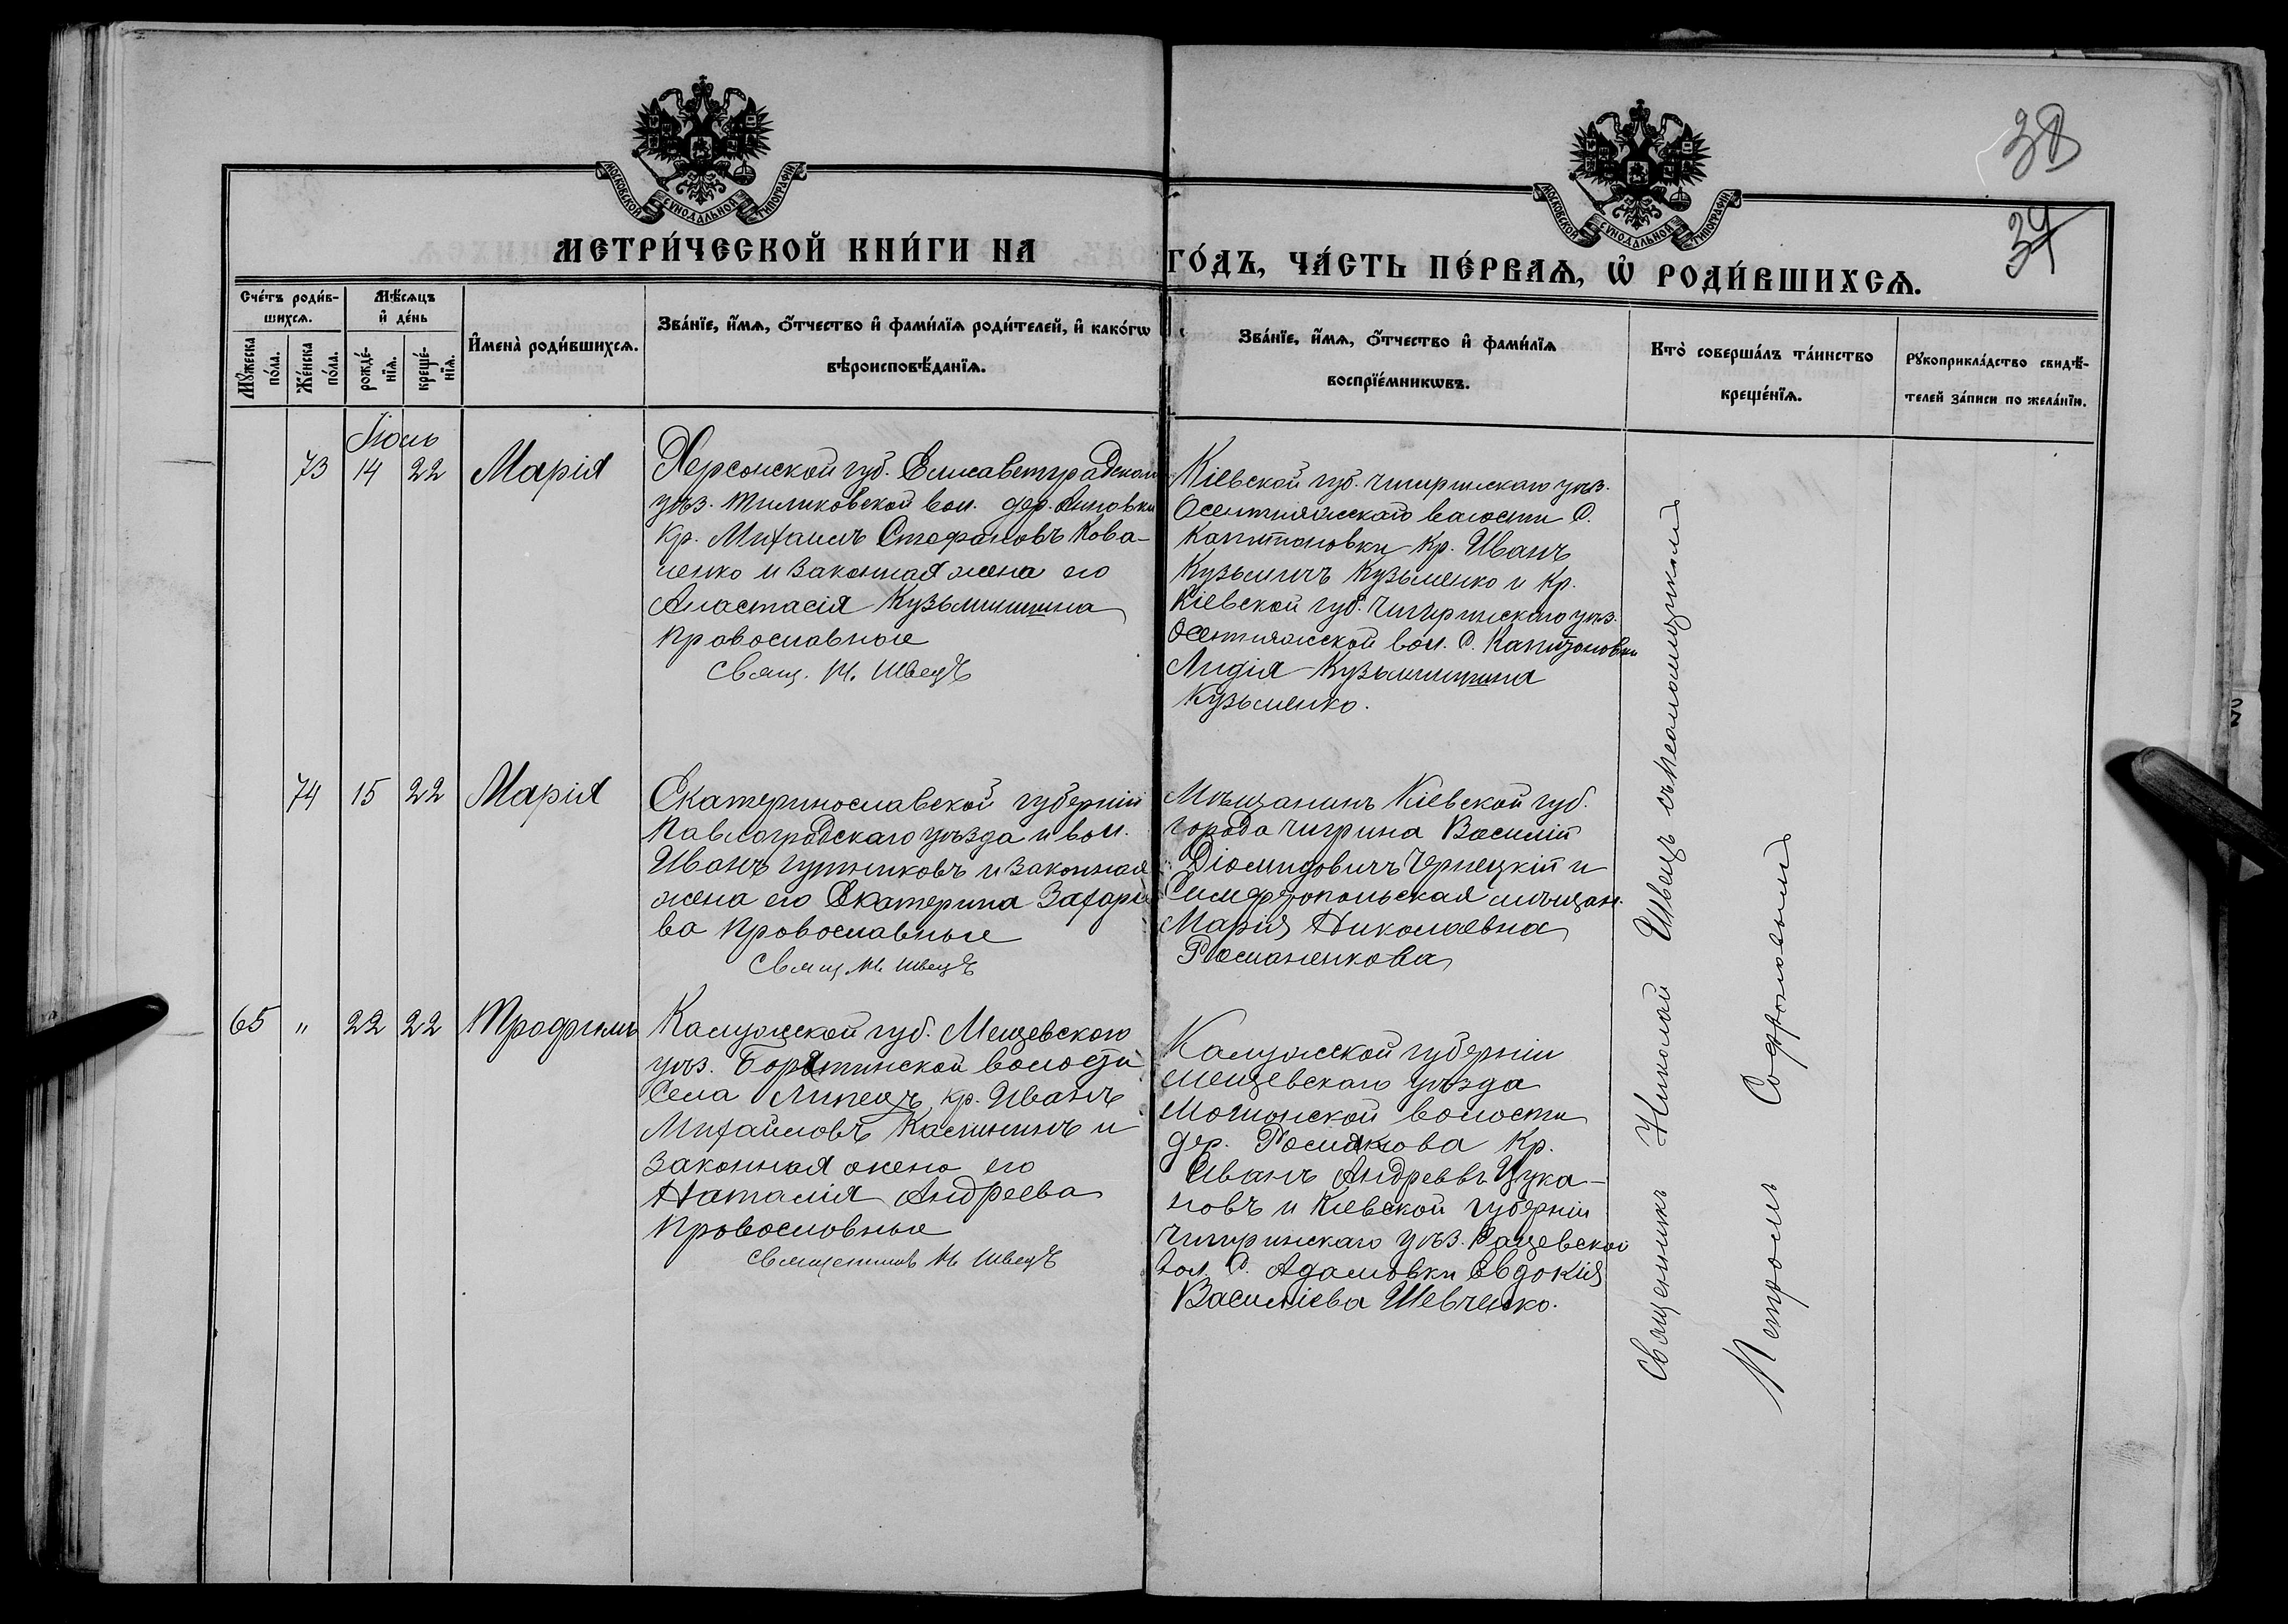 38
34
МОСКОВСКОЙ СѴНОДАЛЬНОЙ ТИПОГРАФІИ.
МОСКОВСКОЙ СѴНОДАЛЬНОЙ ТИПОГРАФІИ.
МЕТРИ́ЧЕСКОЙ КНИ́ГИ НА ГО́ДЪ, ЧА́СТЬ ПЕ́РВАѦ, Ѡ҆ РОДИ́ВШИХСѦ.
Сче́тъ роди́в-
шихсѧ.
Мѣ́сѧцъ
и҆ де́нь
Мꙋ́жеска
по́ла.
Же́нска
по́ла.
рожде́-
нїѧ.
креще́-
нїѧ.
И҆мена̀ роди́вшихсѧ.
Зва́нїе, и҆́мѧ, ѻ҆́тчество и҆ фами́лїѧ роди́телей, и҆ како́гѡ
вѣроисповѣ́данїѧ.
Зва́нїе, и҆́мѧ, ѻ҆́тчество и҆ фами́лїѧ
воспрїе́мникѡвъ.
Кто̀ соверша́лъ та́инство
креще́нїѧ.
Рꙋкоприкла́дство свидѣ́-
телей за́писи по жела́нїю.
Іюль
73 14 22 Марія
Херсонской губ. Елисаветградскаго
уѣз. вол. дер.
кр. Михаилъ Стефановъ Кова-
ленко и законная жена его
Анастасія Кузьминишна
православные
Свящ. Н. Швецъ
Кіевской губ. Чигиринскаго уѣз.
Осентияжскаго валости С.
Капитоновки кр. Иванъ
Кузьмичъ Кузьменко и кр.
Кіевской губ. Чигиринскаго уѣз.
Осентияжской вол. С. Капитоновки
Лидія Кузьминишна
Кузьменко.
74 15 22 Марія
Екатеринославской губерніи
Павлоградскаго уѣзда и вол.
Иванъ и законная
жена его Екатерина Захарье
ва православные
Свящ. Н. Швецъ
Мѣщанинъ Кіевской губ.
города Чигрина Василій
Діомидовичъ Чернецкій и
Симферопольская мѣщан.
Марія Николаевна
Романенкова
65 " 22 22 Трофимъ
Калужской губ. Мещевскаго
уѣз. Борятинской волости
села Липецъ кр. Иванъ
Михайловъ Калининъ и
законная жена его
Наталія Андреева
православные
Священникъ Н. Швецъ
Калужской губерніи
Мещевскаго уѣзда
волости
дер. кр.
Иванъ Андреевъ Цука-
новъ и Кіевской губерніи
Чигиринскаго уѣз.
вол. С. Адамовки Евдокія
Василіева Шевченко.
Священникъ Николай Швецъ съ псаломщикомъ
Петромъ